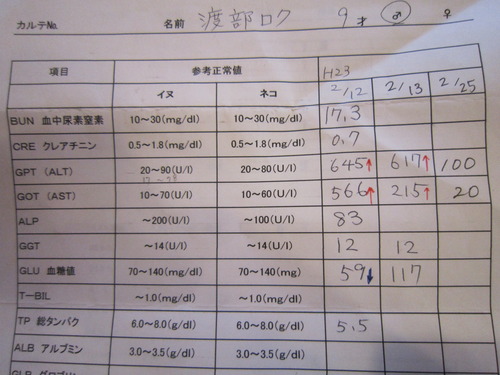 カルテNo. 名前 渡部ロク 9才 ♂ ♀
項目 参考正常値 H23
イヌ ネコ 2/12 2/13 2/25
BUN 血中尿素窒素 10～30(mg/dl) 10～30(mg/dl) 17,3
CRE クレアチニン 0.5～1.8(mg/dl) 0.5～1.8(mg/dl) 0.7
GPT (ALT) 20～90(U/l) 20～80(U/l) 645↑ 617↑ 100
GOT (AST) 10～70(U/l) 10～60(U/l) 566↑ 215↑ 20
ALP ～200(U/l) ～100(U/l) 83
GGT ～14(U/l) ～14(U/l) 12 12
GLU 血糖値 70～140(mg/dl) 70～140(mg) 59↓ 117
T－BIL ～1.0(mg/dl) ～1.0(mg/dl)
TP 総タンパク 6.0～8.0(g/dl) 6.0～8.0(g/dl) 5.5
ALB アルブミン 3.0～3.5(g/dl) 3.0～3.5(g/dl)